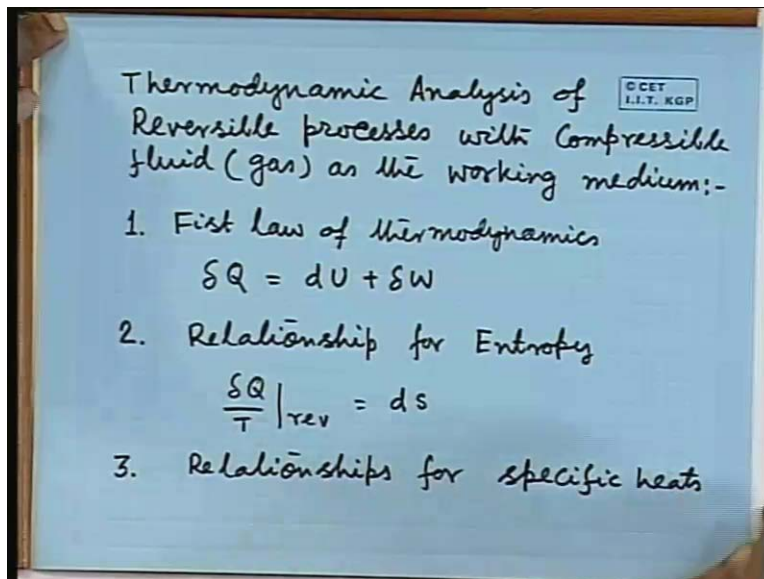 Thermodynamic Analysis of
© CET
I.I.T. KGP
Reversible processes with Compressible
fluid (gas) as the working medium:-
1. Fist law of thermodynamics
δQ = dU + δW
2. Relationship for Entropy
δQ/T |rev = ds
3. Relationships for specific heats